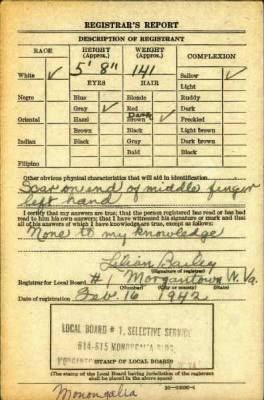 REGISTRAR'S REPORT
DESCRIPTION OF REGISTRANT
RACE HEIGHT (Approx.) WEIGHT (Approx.) COMPLEXION
White ✓ 5' 8" 141 Sallow ✓
EYES HAIR Light
Negro Blue Blonde Ruddy
Gray ✓ Red Dark
Dark
Oriental Hazel Brown ✓ Freckled
Brown Black Light brown
Indian Black Gray Dark brown
Bald Black
Filipino
Other obvious physical characteristics that will aid in identification
Scar on end of middle finger
left hand
I certify that my answers are true; that the person registered has read or has had
read to him his own answers; that I have witnessed his signature or mark and that
all of his answers of which I have knowledge are true, except as follows:
None to my knowledge
Lilian Bailey
(Signature of registrar)
Registrar for Local Board #1 Morgantown W. Va.
(Number) (City or county) (State)
Date of registration Feb. 16 1942
LOCAL BOARD # 1, SELECTIVE SERVICE
#14-615 MONONGAHELA BLDG.
W. VA.
STAMP OF LOCAL BOARD
(The stamp of the Local Board having jurisdiction of the registrant
shall be placed in the above space)
Monongalia